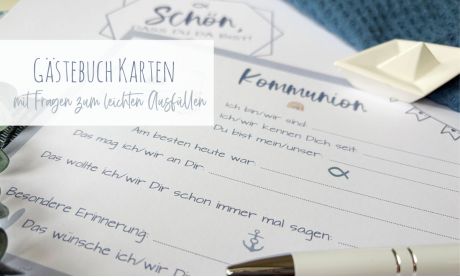 Schön,
DASS DU DA BIST!
GÄSTEBUCH KARTEN
mit Fragen zum leichten Ausfüllen
Kommunion
Ich bin/wir sind:
Ich/wir kennen Dich seit:
Du bist mein/unser:
Am besten heute war:
Das mag ich/wir an Dir:
Das wollte ich/wir Dir schon immer mal sagen:
Besondere Erinnerung:
Das wünsche ich/wir Dir